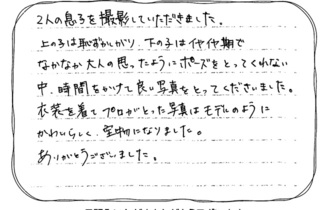 2人の息子を撮影していただきました。
上の子は恥ずかしがり、下の子はイヤイヤ期で
なかなか大人の思ったようにポーズをとってくれない
中、時間をかけて良い写真をとってくださいました。
衣装を着てプロがとった写真はモデルのように
かわいらしく、宝物になりました。
ありがとうございました。